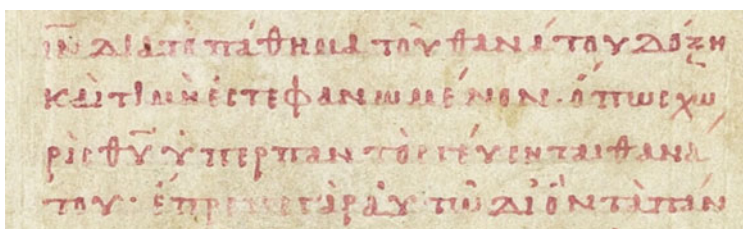 ι̅ν̅ διατὸ πάθημα τοῦ θανάτου δόξη
καὶ τιμῆ ἐστεφανωμένον· ὅπως χω
ρὶς θ̅υ̅ ὑπερ παντὸς γεύσηται θανά
του· ἔπρεπε γὰρ αὐτῶ δι ὃν τὰ πάν